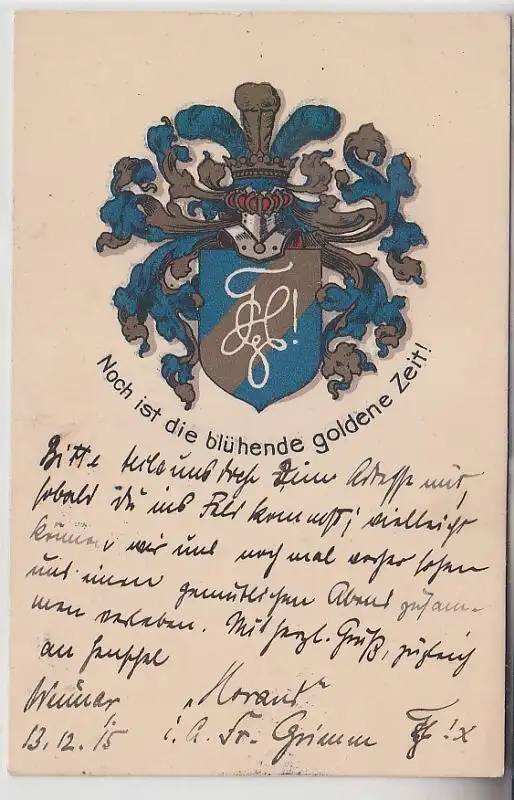 Noch ist die blühende goldene Zeit!
Bitte teile uns doch Deine Adresse mit,
sobald Du ins Feld kommst; vielleicht
können wir uns noch mal vorher sehen
und einen gemütlichen Abend zusam-
men verleben. Mit herzl. Gruß, zugleich
an Henschel
Weimar "Morand"
13.12.15 i. A. Fr. Grimm